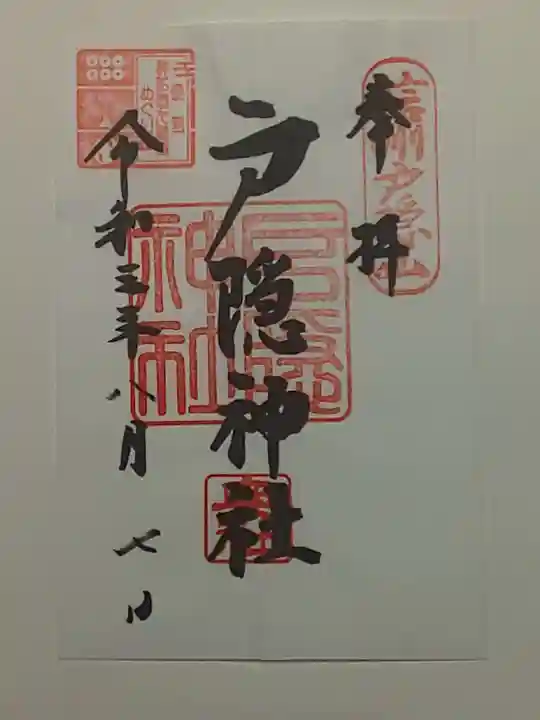 奉拝
信州戸隠山
戸隠神社
戸隠神社
令和三年八月七日